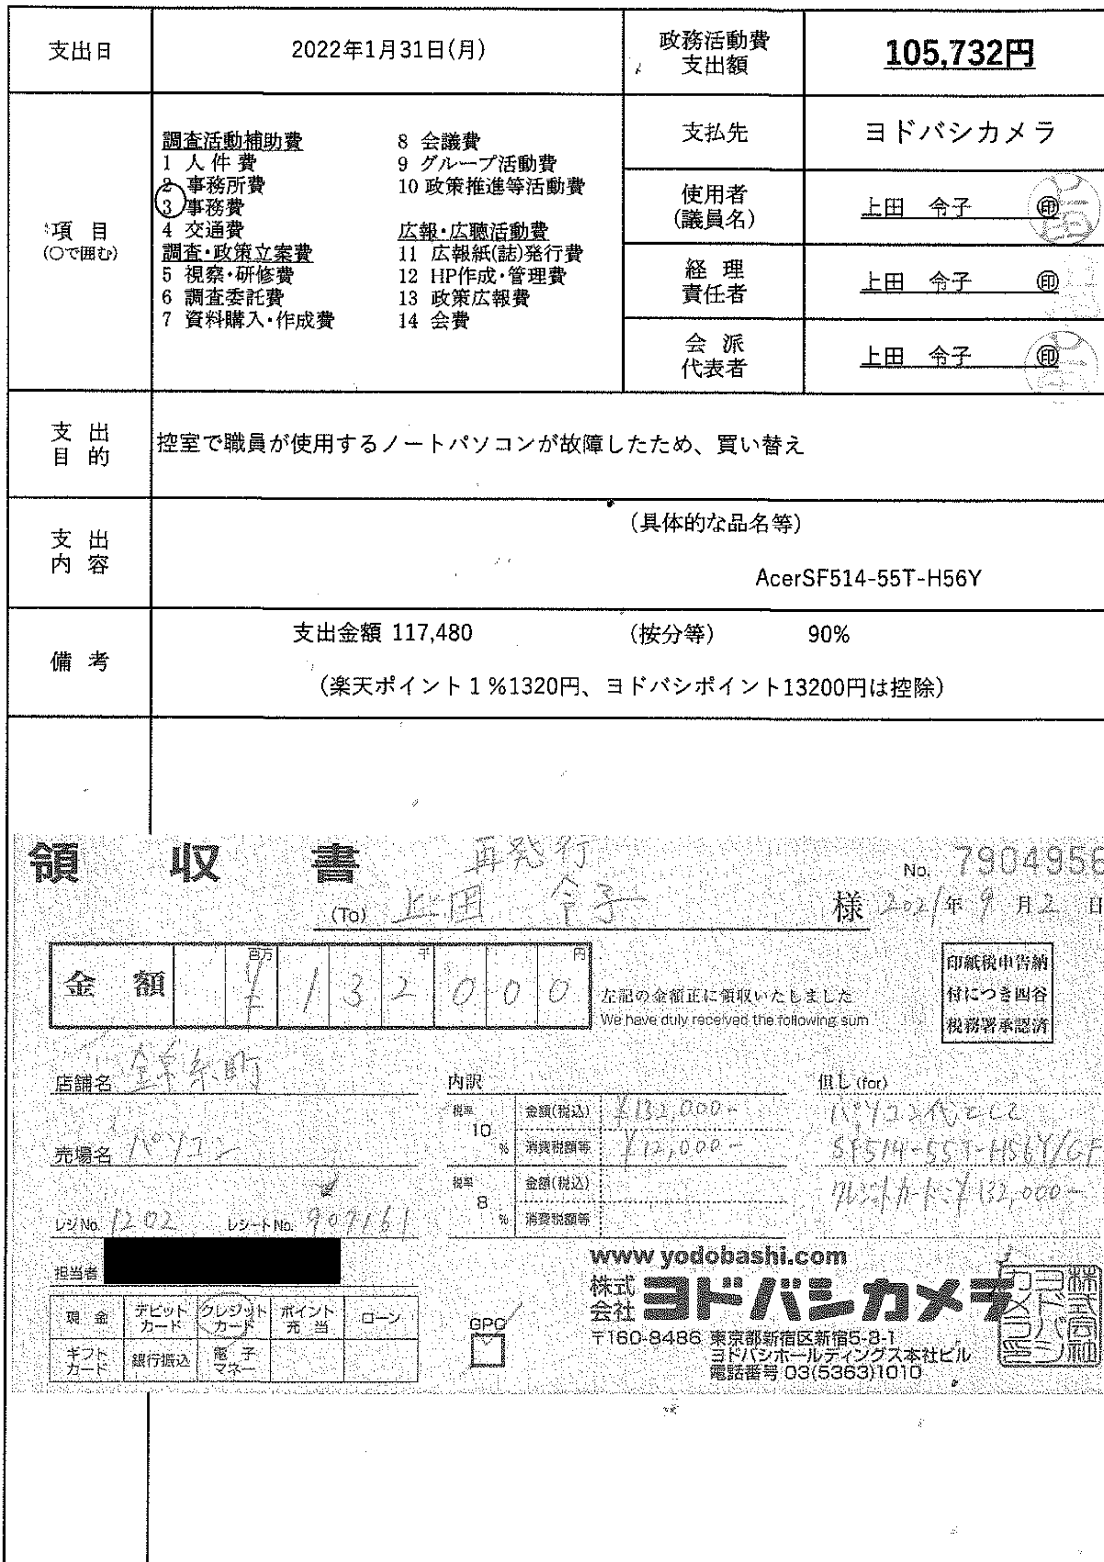 支出日 2022年1月31日(月) 政務活動費支出額 105,732円
項目(〇で囲む)
調査活動補助費
1 人件費
2 事務所費
3 事務費
4 交通費
調査・政策立案費
5 視察・研修費
6 調査委託費
7 資料購入・作成費
8 会議費
9 グループ活動費
10 政策推進等活動費
広報・広聴活動費
11 広報紙(誌)発行費
12 HP作成・管理費
13 政策広報費
14 会費
支払先 ヨドバシカメラ
使用者(議員名) 上田 令子 ㊞
経理責任者 上田 令子 ㊞
会派代表者 上田 令子 ㊞
支出目的 控室で職員が使用するノートパソコンが故障したため、買い替え
支出内容 (具体的な品名等)
AcerSF514-55T-H56Y
備考 支出金額 117,480 (按分等) 90%
(楽天ポイント1%1320円、ヨドバシポイント13200円は控除)
領収書 再発行 No. 7904956
(To) 上田 令子 様 2021年9月2日
金額 百万 千 円 ¥132000
左記の金額正に領収いたしました
We have duly received the following sum
印紙税申告納
付につき四谷
税務署承認済
店舗名 錦糸町
売場名 パソコン
レジNo. 1202 レシートNo. 907161
担当者
内訳
税率 10% 金額(税込) ¥132,000-
消費税額等 ¥12,000-
税率 8% 金額(税込)
消費税額等
但し(for)
パソコン代として
SF514-55T-H56Y/GF
クレジットカード:¥132,000-
現金 デビットカード クレジットカード ポイント充当 ローン
ギフトカード 銀行振込 電子マネー
GPC
www.yodobashi.com
株式会社 ヨドバシカメラ
〒160-8486 東京都新宿区新宿5-3-1
ヨドバシホールディングス本社ビル
電話番号 03(5363)1010
株式会社ヨドバシカメラ